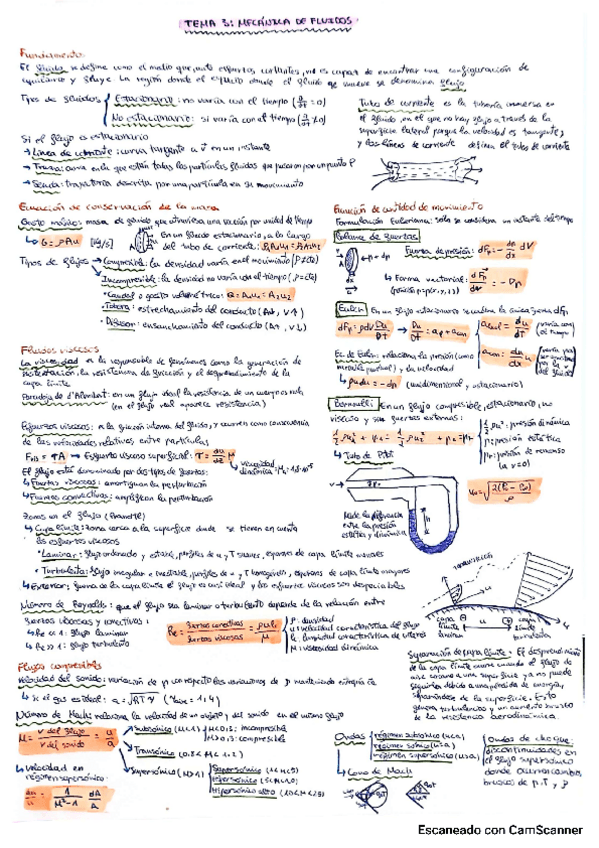 TEMA 3: MECÁNICA DE FLUIDOS
Fundamento
El fluido se define como el medio que, ante esfuerzos cortantes, no es capaz de encontrar una configuración de
equilibrio y fluye. La región donde el fluido se mueve se denomina flujo
Tipos de fluidos
Estacionario: no varía con el tiempo (∂/∂t = 0)
No estacionario: sí varía con el tiempo (∂/∂t ≠ 0)
Si el flujo es estacionario
→ Línea de corriente: curva tangente a v en un instante
→ Traza: curva en que están todas las partículas fluidas que pasaron por un punto P
→ Senda: trayectoria descrita por una partícula en su movimiento
Tubo de corriente es la tubería inmersa en
el fluido, en el que no hay flujo a través de la
superficie lateral porque la velocidad es tangente,
y las líneas de corriente definen el tubo de corriente
Ecuación de conservación de la masa
Gasto másico: masa de fluido que atraviesa una sección por unidad de tiempo
G = ρAu [kg/s]
En un fluido estacionario, a lo largo
del tubo de corriente: ρ₁A₁u₁ = ρ₂A₂u₂
Tipos de flujos → Compresible: la densidad varía en el movimiento (ρ ≠ cte)
Incompresible: la densidad no varía con el tiempo (ρ = cte)
• Caudal o gasto volumétrico: Q = A₁u₁ = A₂u₂
• Tobera: estrechamiento del conducto (A↓, v↑)
• Difusor: ensanchamiento del conducto (A↑, v↓)
Ecuación de cantidad de movimiento
Formulación Euleriana: solo se considera un instante del tiempo
Balance de fuerzas
Fuerza de presión: dFp = - dp/dx dV
→ Forma vectorial:
Euler: En un flujo estacionario
Ec. de Euler: relaciona la presión (como
y la velocidad
ρudu = -dp (unidimensional y estacionario)
Bernoulli: En un flujo compresible, estacionario, no
viscoso y sin fuerzas externas:
presión dinámica
p: presión estática
presión de remanso
(u = 0)
→ Tubo de Pitot
Mide la diferencia
entre la presión
estática y dinámica
Fluidos viscosos
La viscosidad es la responsable de fenómenos como la generación de
sustentación, la resistencia de fricción y el desprendimiento de la
capa límite
Paradoja de d'Alembert: en un flujo ideal la resistencia de un cuerpo es nula
(en el flujo real aparece resistencia)
Esfuerzos viscosos: es la fricción interna del fluido, y ocurren como consecuencia
de las velocidades relativas entre partículas
→ Esfuerzo viscoso superficial: τ = du/dz μ
viscosidad
dinámica
El flujo está denominado por dos tipos de fuerzas:
→ Fuerzas viscosas: amortiguan la perturbación
→ Fuerzas convectivas: amplifican la perturbación
Zonas en el flujo (Prandtl)
→ Capa límite: zona cerca a la superficie donde se tienen en cuenta
los esfuerzos viscosos
• Laminar: flujo ordenado y estable, perfiles de u y T suaves, espesores de capa límite menores
• Turbulenta: flujo irregular e inestable, perfiles de u y T homogéneos, espesores de capa límite mayores
→ Exterior: fuera de la capa límite el flujo es casi ideal y los esfuerzos viscosos son despreciables
TRANSICIÓN
capa límite laminar
capa límite turbulenta
Número de Reynolds: que el flujo sea laminar o turbulento depende de la relación entre
fuerzas viscosas y convectivas:
→ Re << 1: flujo laminar
→ Re >> 1: flujo turbulento
Re = fuerzas convectivas / fuerzas viscosas = ρuL / μ
ρ: densidad
u: velocidad característica del flujo
L: longitud característica de interés
μ: viscosidad dinámica
Separación de capa límite: El desprendimiento
de la capa límite ocurre cuando el flujo de
aire cercano a una superficie ya no puede
seguirla debido a una pérdida de energía,
separándose de la superficie. Esto
genera turbulencias y un aumento brusco
de la resistencia aerodinámica.
Flujos compresibles
Velocidad del sonido: variación de p con respecto las variaciones de ρ manteniendo entropía cte
→ si el gas es ideal: a = √γRT (γaire = 1,4)
Número de Mach: relaciona la velocidad de un objeto y del sonido en el mismo flujo
M = v del flujo / v del sonido = u/a
→ Subsónico (M<1)
M<0,3: incompresible
M>0,3: compresible
→ Transónico (0,8<M<1,2)
→ Supersónico (M>1)
Supersónico
Hipersónico
Hipersónico alto
→ Velocidad en
régimen supersónico:
du/u = 1/(M²-1) dA/A
Ondas
régimen subsónico (u<a)
régimen sónico (u=a)
régimen supersónico (u>a)
→ Cono de Mach
Ondas de choque:
discontinuidades en
el flujo supersónico
donde ocurren cambios
bruscos de p, T y ρ
Escaneado con CamScanner